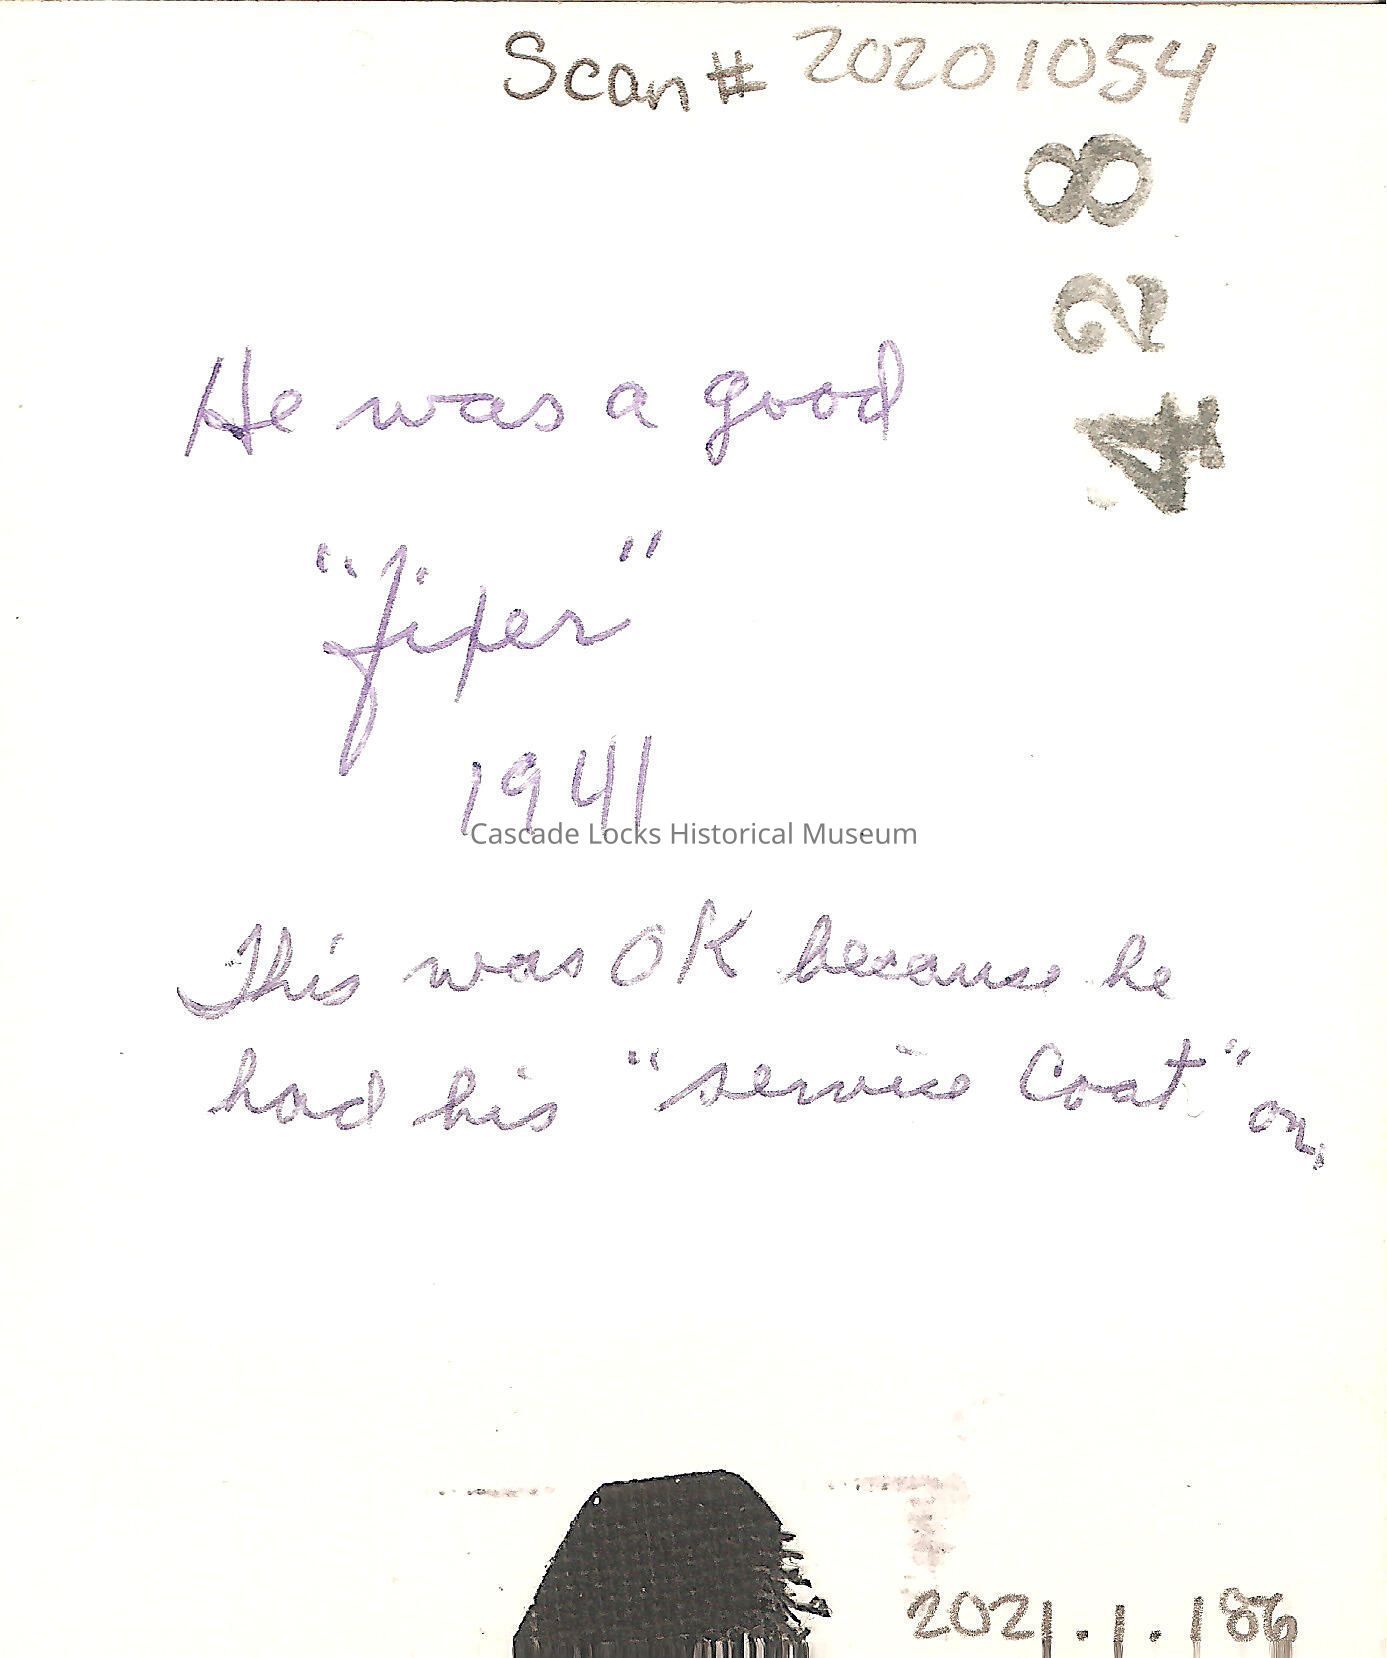 Scan # 20201054
428
He was a good
"fixer"
1941
Cascade Locks Historical Museum
This was OK because he
had his "service Coat" on.
2021.1.186